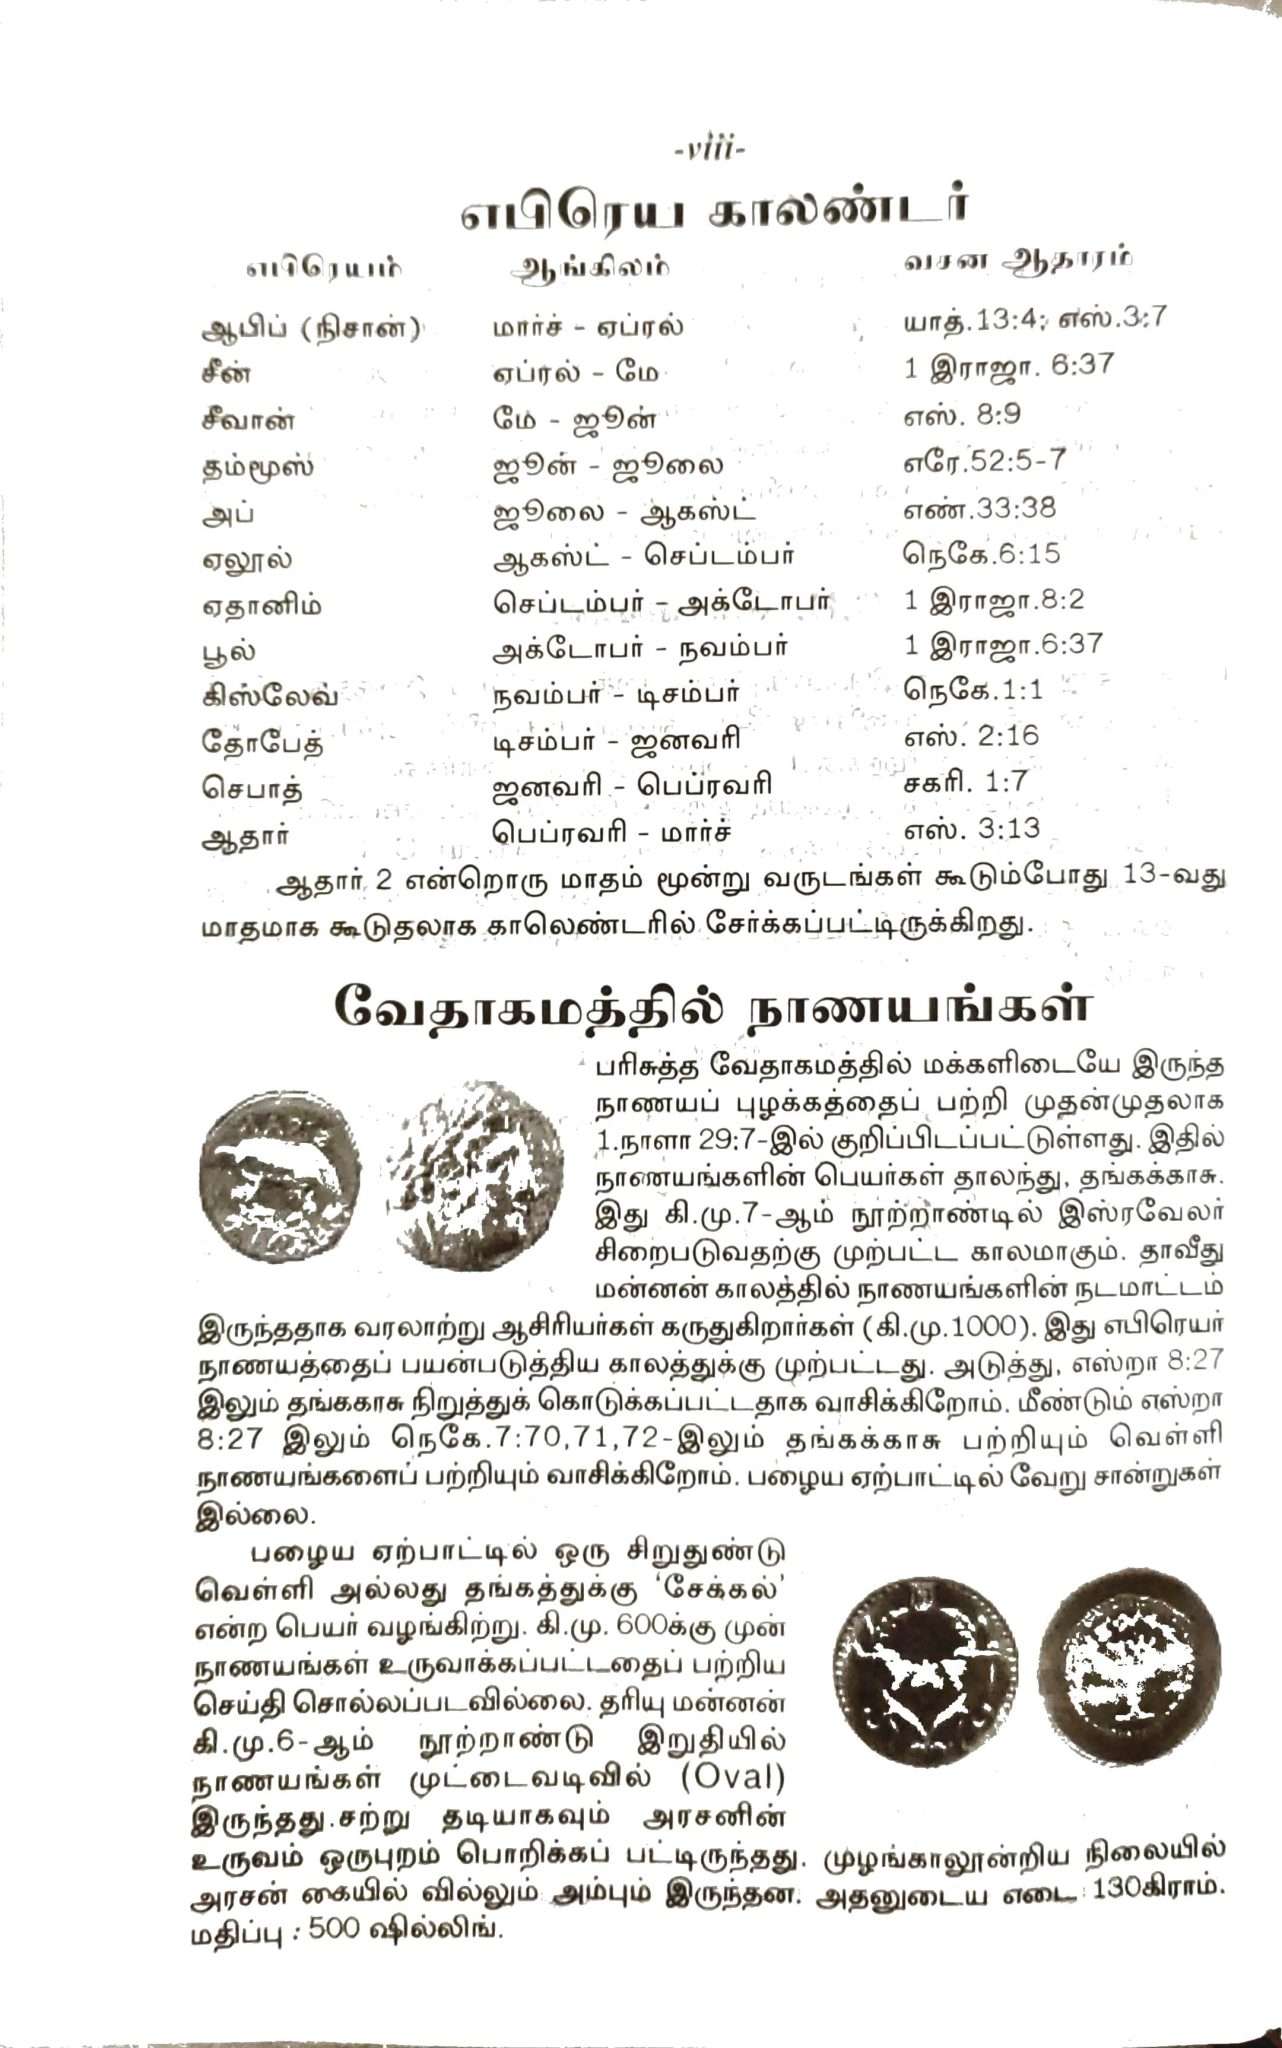 -viii-
எபிரெய காலண்டர்
எபிரெயம் ஆங்கிலம் வசன ஆதாரம்
ஆபிப் (நிசான்) மார்ச் - ஏப்ரல் யாத்.13:4; எஸ்.3:7
சீன் ஏப்ரல் - மே 1 இராஜா. 6:37
சீவான் மே - ஜூன் எஸ். 8:9
தம்மூஸ் ஜூன் - ஜூலை எரே.52:5-7
அப் ஜூலை - ஆகஸ்ட் எண்.33:38
ஏலூல் ஆகஸ்ட் - செப்டம்பர் நெகே.6:15
ஏதானிம் செப்டம்பர் - அக்டோபர் 1 இராஜா.8:2
பூல் அக்டோபர் - நவம்பர் 1 இராஜா.6:37
கிஸ்லேவ் நவம்பர் - டிசம்பர் நெகே.1:1
தோபேத் டிசம்பர் - ஜனவரி எஸ். 2:16
செபாத் ஜனவரி - பெப்ரவரி சகரி. 1:7
ஆதார் பெப்ரவரி - மார்ச் எஸ். 3:13
ஆதார் 2 என்றொரு மாதம் மூன்று வருடங்கள் கூடும்போது 13-வது
மாதமாக கூடுதலாக காலெண்டரில் சேர்க்கப்பட்டிருக்கிறது.
வேதாகமத்தில் நாணயங்கள்
பரிசுத்த வேதாகமத்தில் மக்களிடையே இருந்த
நாணயப் புழக்கத்தைப் பற்றி முதன்முதலாக
1.நாளா 29:7-இல் குறிப்பிடப்பட்டுள்ளது. இதில்
நாணயங்களின் பெயர்கள் தாலந்து, தங்கக்காசு.
இது கி.மு.7-ஆம் நூற்றாண்டில் இஸ்ரவேலர்
சிறைபடுவதற்கு முற்பட்ட காலமாகும். தாவீது
மன்னன் காலத்தில் நாணயங்களின் நடமாட்டம்
இருந்ததாக வரலாற்று ஆசிரியர்கள் கருதுகிறார்கள் (கி.மு.1000). இது எபிரெயர்
நாணயத்தைப் பயன்படுத்திய காலத்துக்கு முற்பட்டது. அடுத்து, எஸ்றா 8:27
இலும் தங்ககாசு நிறுத்துக் கொடுக்கப்பட்டதாக வாசிக்கிறோம். மீண்டும் எஸ்றா
8:27 இலும் நெகே.7:70,71,72-இலும் தங்கக்காசு பற்றியும் வெள்ளி
நாணயங்களைப் பற்றியும் வாசிக்கிறோம். பழைய ஏற்பாட்டில் வேறு சான்றுகள்
இல்லை.
பழைய ஏற்பாட்டில் ஒரு சிறுதுண்டு
வெள்ளி அல்லது தங்கத்துக்கு 'சேக்கல்'
என்ற பெயர் வழங்கிற்று. கி.மு. 600க்கு முன்
நாணயங்கள் உருவாக்கப்பட்டதைப் பற்றிய
செய்தி சொல்லப்படவில்லை. தரியு மன்னன்
கி.மு.6-ஆம் நூற்றாண்டு இறுதியில்
நாணயங்கள் முட்டைவடிவில் (Oval)
இருந்தது.சற்று தடியாகவும் அரசனின்
உருவம் ஒருபுறம் பொறிக்கப் பட்டிருந்தது. முழங்காலூன்றிய நிலையில்
அரசன் கையில் வில்லும் அம்பும் இருந்தன. அதனுடைய எடை 130கிராம்.
மதிப்பு : 500 ஷில்லிங்.